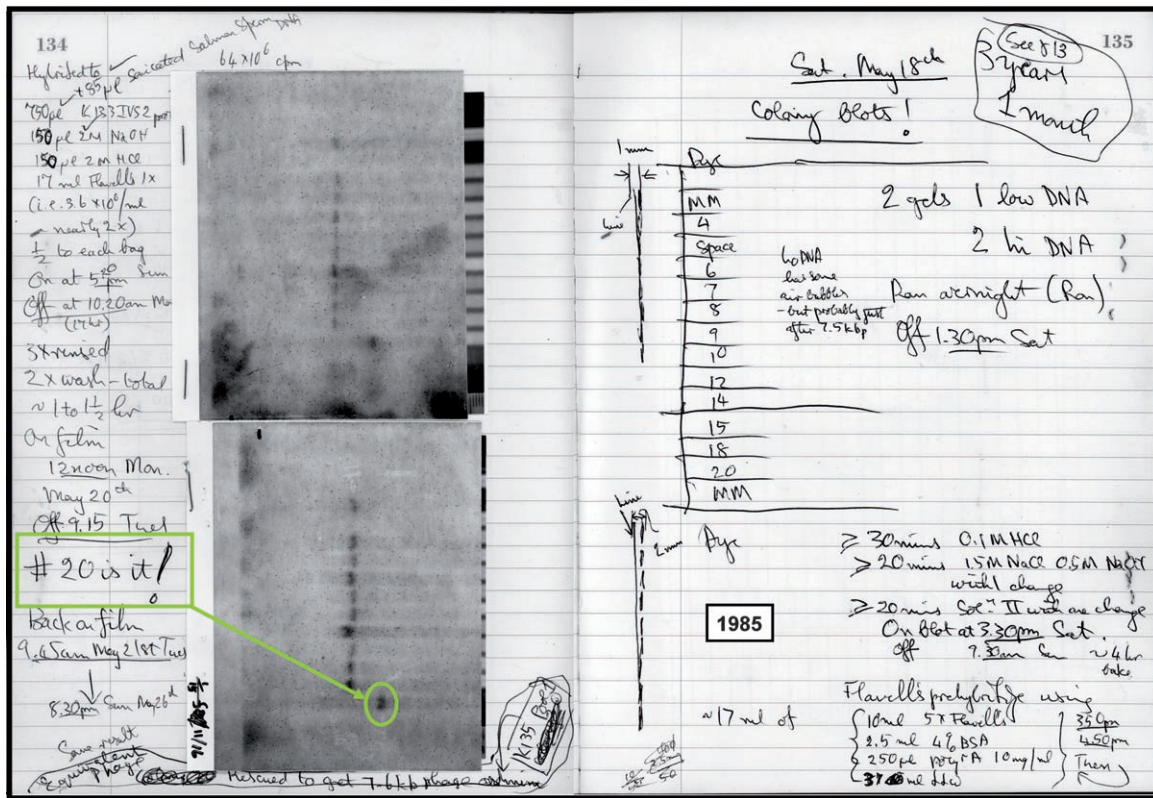 134
Hybrided to
+ 85 µl Sonicated Salmon Sperm DNA
64 x 10⁶ cpm
750µl K133IVS2
150µl 2M NaOH
150µl 2M HCl
17 ml Flavells 1x
(i.e. 3.6 x 10⁶/ml
~ nearly 2x)
½ to each bag
On at 5²⁰pm Sun
Off at 10.20am Mon
(17hr)
3x rinsed
2x wash - total
~ 1 to 1½ hr
On film
12 noon Mon.
May 20th
Off 9.15 Tues
#20 is it!
Back on film
9.45am May 21st Tues
8.30pm Sun May 26th
Same result
Equivalent phage
Rescued to get 7.6kb phage
K135
135
See p 13
3 years
1 month
Sat. May 18th
Coling Blots!
1mm
line
Dye
MM
4
Space
6
7
8
9
10
12
14
15
18
20
MM
Dye
hi DNA
has some
air bubbles
- but probably just
after 7.5kbp
2 gels 1 low DNA
2 hi DNA
Ran overnight (Ron)
Off 1.30pm Sat
line
2mm
1985
≥ 30mins 0.1M HCl
≥ 20mins 1.5M NaCl 0.5M NaOH
with 1 change
≥ 20mins Solⁿ II with one change
On Blot at 3.30pm Sat.
Off 9.30am Sun ~4hr
bake
Flavells prehybridge using
~17 ml of
10ml 5x Flavells
2.5 ml 4% BSA
250µl poly rA 10mg/ml
ml ddw
3 50pm
4 50pm
Then